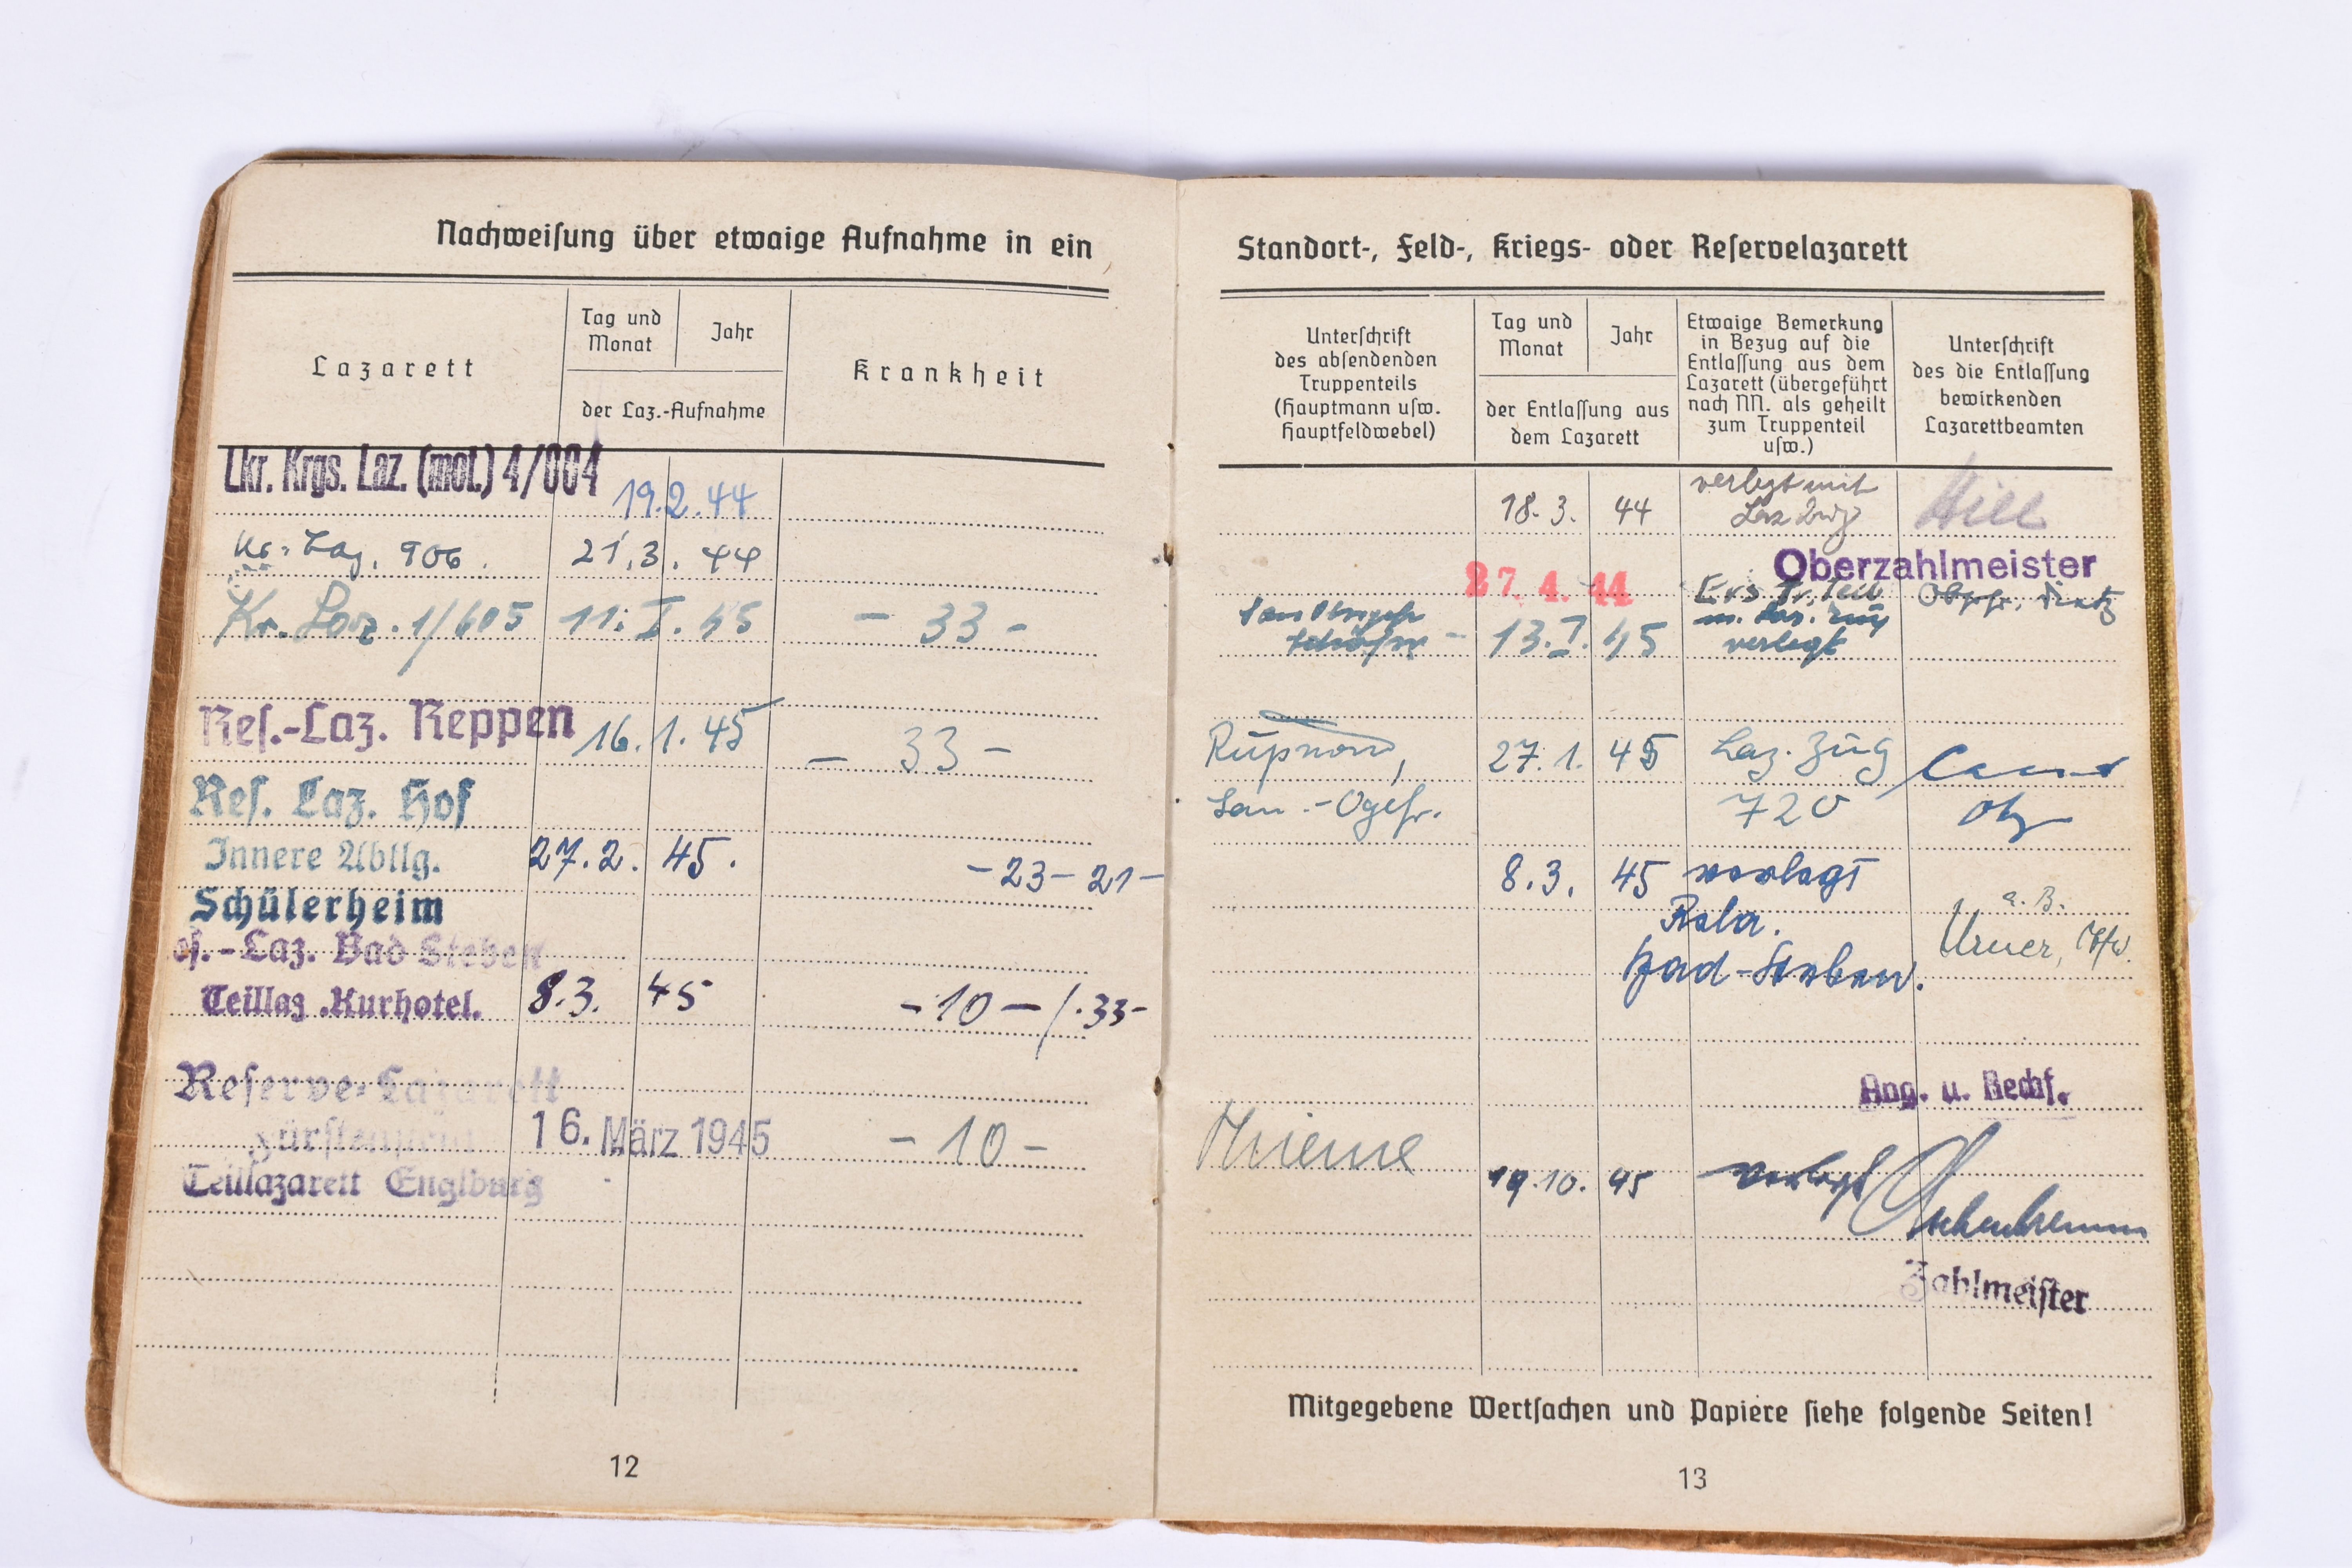 Nachweisung über etwaige Aufnahme in ein
Lazarett
Tag und
Monat
Jahr
der Laz.-Aufnahme
Krankheit
Lkr. Krgs. Laz. (mot.) 4/604
19.2.44
Kr. Laz. 906.
21.3.44
Kr. Laz. 1/605 11. I. 45 - 33 -
Res.-Laz. Reppen 16.1.45 - 33 -
Res. Laz. Hof
Innere Abtlg. 27.2. 45. - 23 - 21 -
Schülerheim
es.-Laz. Bad Steben
Teillaz. Kurhotel. 8.3. 45 - 10 - /.33-
Reserve-Lazarett
Fürstenstein 16. März 1945 - 10 -
Teillazarett Englburg
12
Standort-, Feld-, Kriegs- oder Reservelazarett
Unterschrift
des absendenden
Truppenteils
(Hauptmann usw.
Hauptfeldwebel)
Tag und
Monat
Jahr
der Entlassung aus
dem Lazarett
Etwaige Bemerkung
in Bezug auf die
Entlassung aus dem
Lazarett (übergeführt
nach NN. als geheilt
zum Truppenteil
usw.)
Unterschrift
des die Entlassung
bewirkenden
Lazarettbeamten
18.3. 44 verlegt mit
Laz Zug
Oberzahlmeister
27.4.44 Ers. Tr. Teil
13. I. 45 m. Laz. Zug
verlegt
27.1. 45 Laz. Zug
San.-Ogefr. 720
8.3. 45 verlegt
Bad-Steben.
a. B.
Ang. u. Rechf.
Thieme
19.10. 45 verlegt
Zahlmeister
Mitgegebene Wertsachen und Papiere siehe folgende Seiten!
13